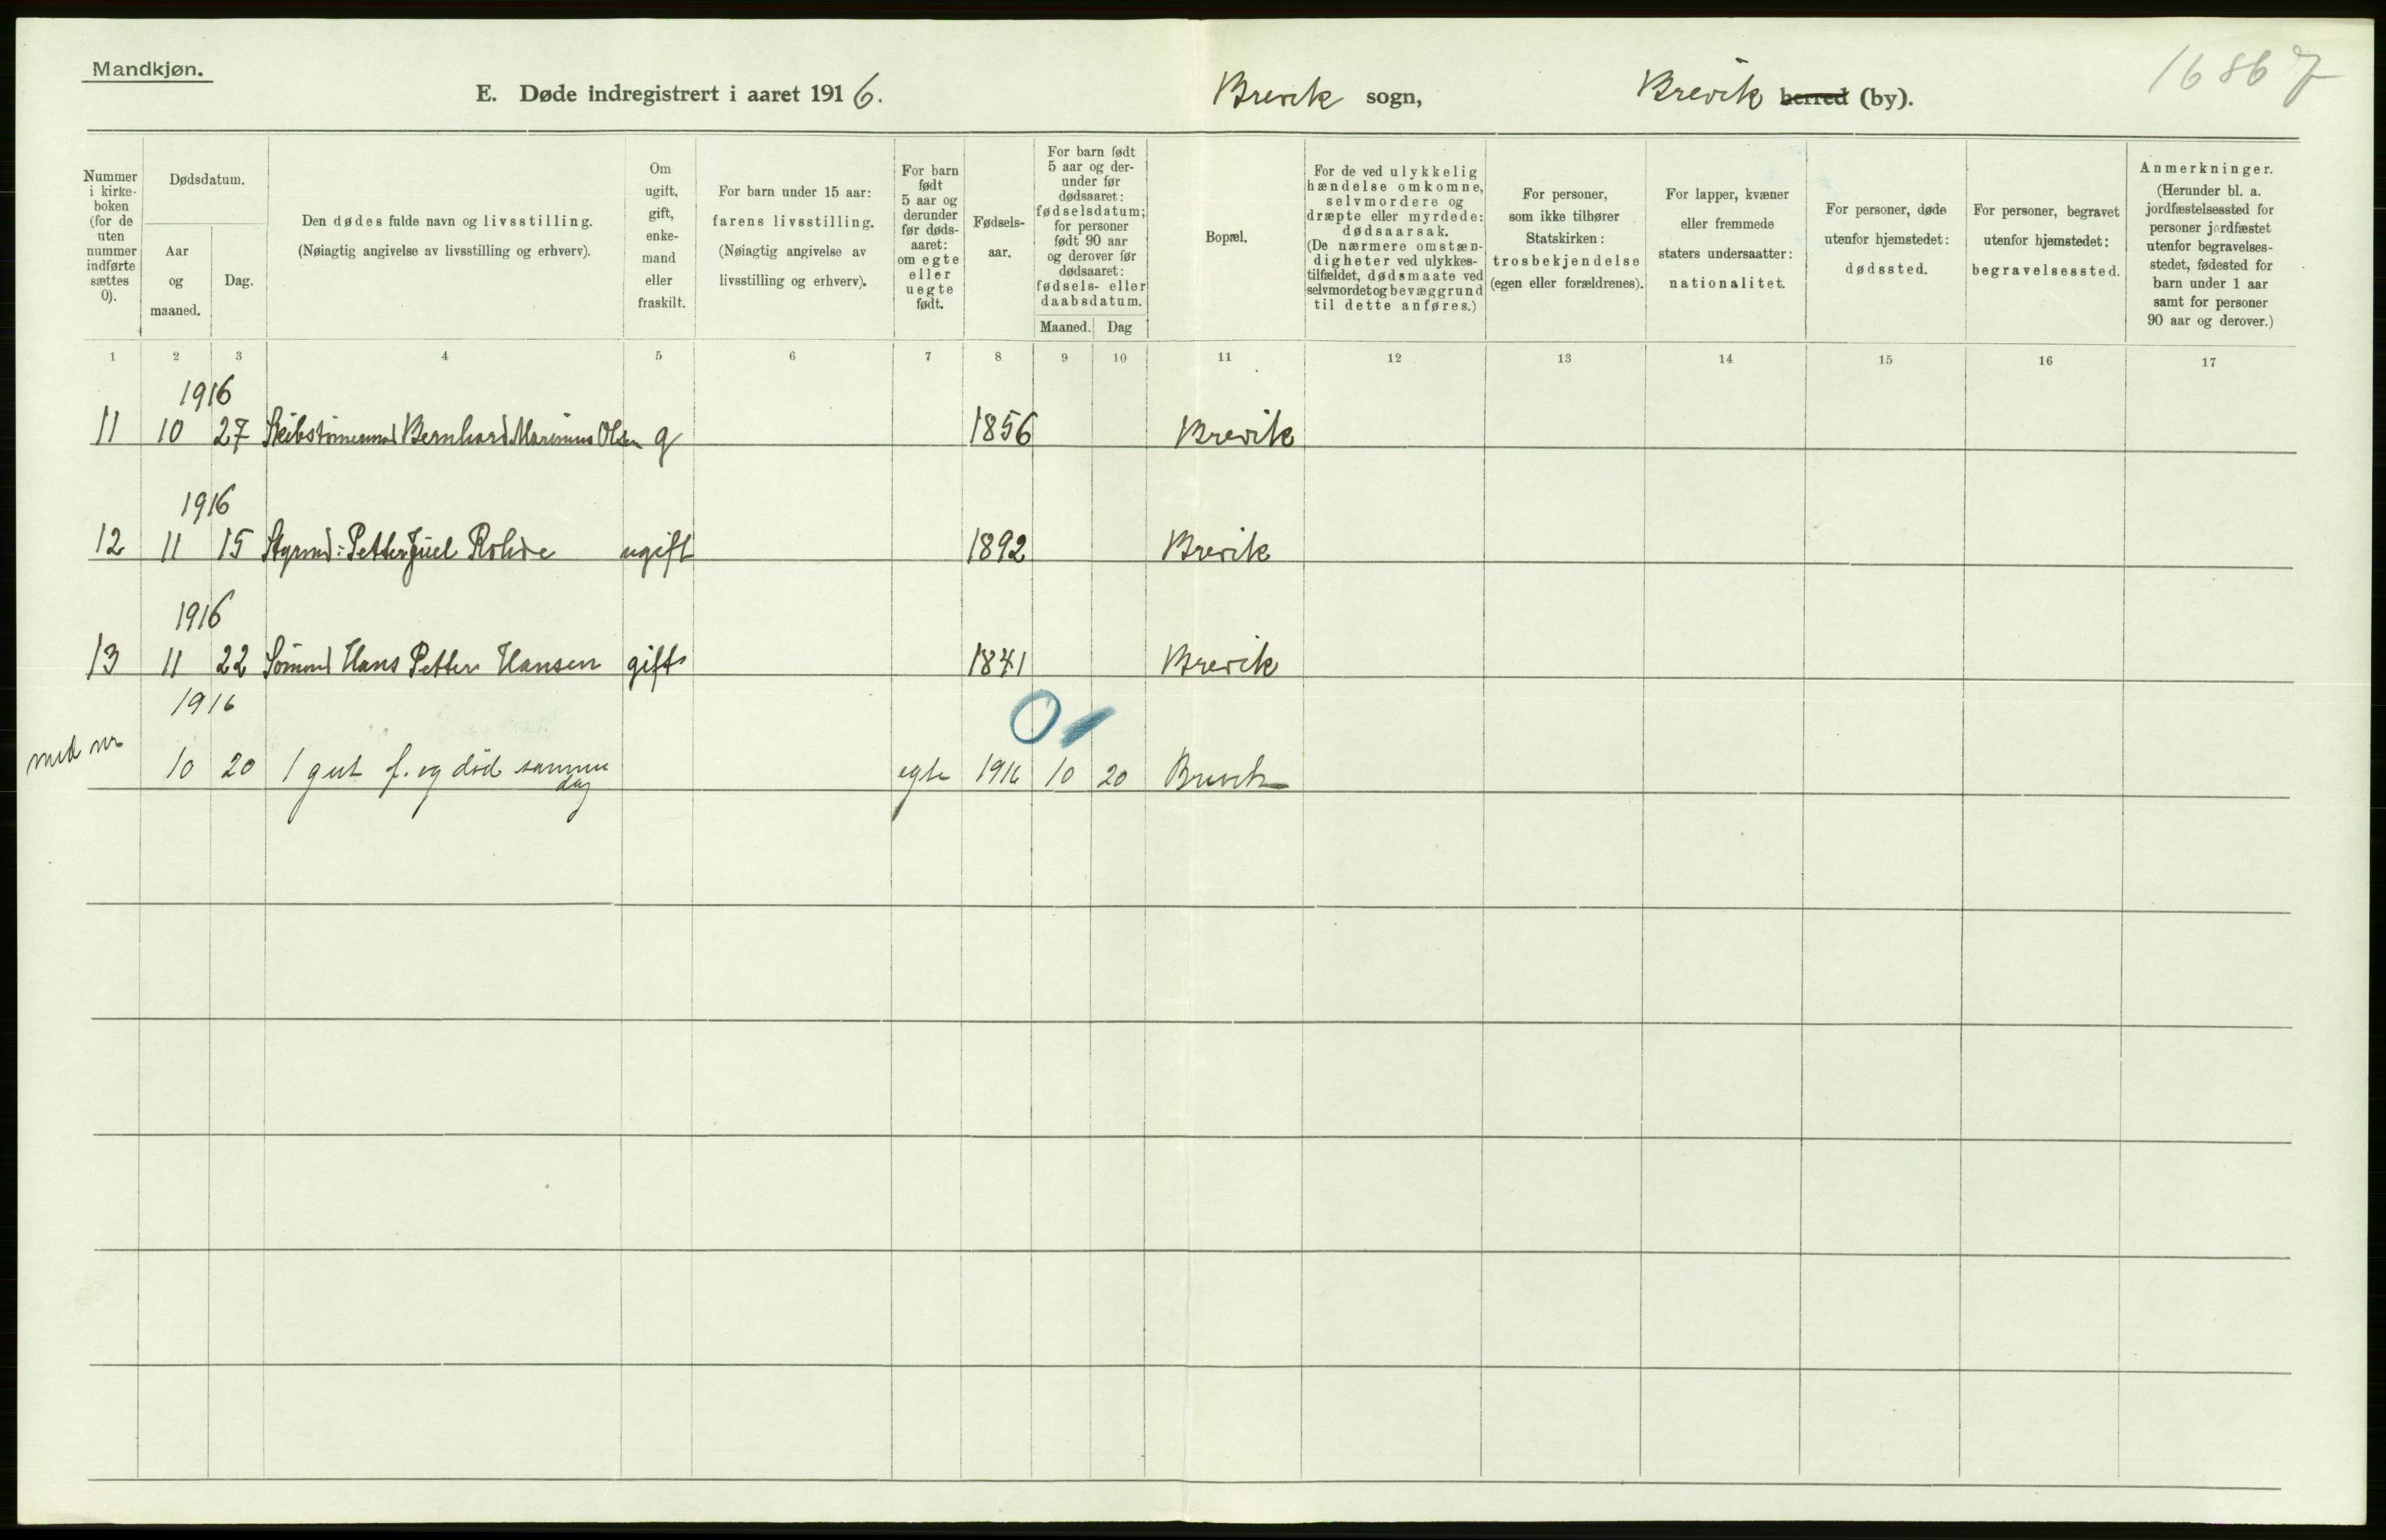 Mandkjøn.
E. Døde indregistrert i aaret 1916. Brevik sogn, Brevik herred (by).
Nummer i kirke- boken (for de uten nummer indførte sættes 0).
Dødsdatum.
Aar og maaned.
Dag.
Den dødes fulde navn og livsstilling.
(Nøiagtig angivelse av livsstilling og erhverv).
Om ugift, gift, enke- mand eller fraskilt.
For barn under 15 aar: farens livsstilling.
(Nøiagtig angivelse av livsstilling og erhverv).
For barn født 5 aar og derunder før døds- aaret: om egte eller uegte født.
Fødsels- aar.
For barn født 5 aar og der- under før dødsaaret: fødselsdatum; for personer født 90 aar og derover før dødsaaret: fødsels- eller daabsdatum.
Maaned. Dag
Bopæl.
For de ved ulykkelig hændelse omkomne, selvmordere og dræpte eller myrdede: dødsaarsak.
(De nærmere omstæn- digheter ved ulykkes- tilfældet, dødsmaate ved selvmordet og bevæggrund til dette anføres.)
For personer, som ikke tilhører Statskirken: trosbekjendelse (egen eller forældrenes).
For lapper, kvæner eller fremmede staters undersaatter: nationalitet.
For personer, døde utenfor hjemstedet: dødssted.
For personer, begravet utenfor hjemstedet: begravelsessted.
Anmerkninger.
(Herunder bl. a. jordfæstelsessted for personer jordfæstet utenfor begravelses- stedet, fødested for barn under 1 aar samt for personer 90 aar og derover.)
1 2 3 4 5 6 7 8 9 10 11 12 13 14 15 16 17
1916
11 10 27 Skibstømmermd Bernhard Marinius Olsen g 1856 Brevik
1916
12 11 15 Styrmd: Petter Juel Rohde ugift 1892 Brevik
1916
13 11 22 Sømmd Hans Petter Hansen gift 1841 Brevik
1916
0
10 20 1 gut f. og död samme dag egte 1916 10 20 Brevik